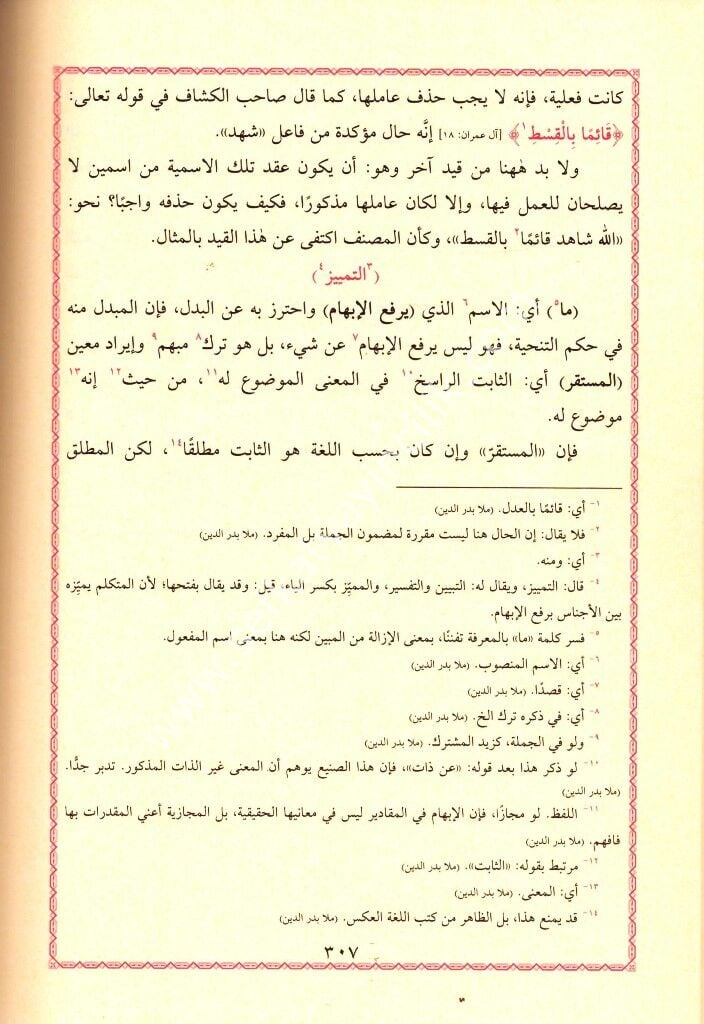 كانت فعلية، فإنه لا يجب حذف عاملها، كما قال صاحب الكشاف في قوله تعالى:
﴿قَائِمًا بِالْقِسْطِ١﴾ [آل عمران: ١٨] إنَّه حال مؤكدة من فاعل «شهد».
ولا بد هٰهنا من قيد آخر وهو: أن يكون عقد تلك الاسمية من اسمين لا
يصلحان للعمل فيها، وإلا لكان عاملها مذكورًا، فكيف يكون حذفه واجبًا؟ نحو:
«الله شاهد قائمًا٢ بالقسط»، وكأن المصنف اكتفى عن هٰذا القيد بالمثال.
(٣التمييز٤)
(ما٥) أي: الاسم٦ الذي (يرفع الإبهام) واحترز به عن البدل، فإن المبدل منه
في حكم التنحية، فهو ليس يرفع الإبهام٧ عن شيء، بل هو ترك٨ مبهم٩ وإيراد معين
(المستقر) أي: الثابت الراسخ١٠ في المعنى الموضوع له١١، من حيث١٢ إنه١٣
موضوع له.
فإن «المستقرّ» وإن كان بحسب اللغة هو الثابت مطلقًا١٤، لكن المطلق
١- أي: قائمًا بالعدل. (ملا بدر الدين)
٢- فلا يقال: إن الحال هنا ليست مقررة لمضمون الجملة بل المفرد. (ملا بدر الدين)
٣- أي: ومنه.
٤- قال: التمييز، ويقال له: التبيين والتفسير، والمميِّز بكسر الياء، قيل: وقد يقال بفتحها؛ لأن المتكلم يميّزه
بين الأجناس برفع الإبهام.
٥- فسر كلمة «ما» بالمعرفة تفننًا، بمعنى الإزالة من المبين لكنه هنا بمعنى اسم المفعول.
٦- أي: الاسم المنصوب. (ملا بدر الدين)
٧- أي: قصدًا. (ملا بدر الدين)
٨- أي: في ذكره ترك الخ. (ملا بدر الدين)
٩- ولو في الجملة، كزيد المشترك. (ملا بدر الدين)
١٠- لو ذكر هذا بعد قوله: «عن ذات»، فإن هذا الصنيع يوهم أن المعنى غير الذات المذكور. تدبر جدًّا.
(ملا بدر الدين)
١١- اللفظ. لو مجازًا، فإن الإبهام في المقادير ليس في معانيها الحقيقية، بل المجازية أعني المقدرات بها
فافهم. (ملا بدر الدين)
١٢- مرتبط بقوله: «الثابت». (ملا بدر الدين)
١٣- أي: المعنى. (ملا بدر الدين)
١٤- قد يمنع هذا، بل الظاهر من كتب اللغة العكس. (ملا بدر الدين)
٣٠٧